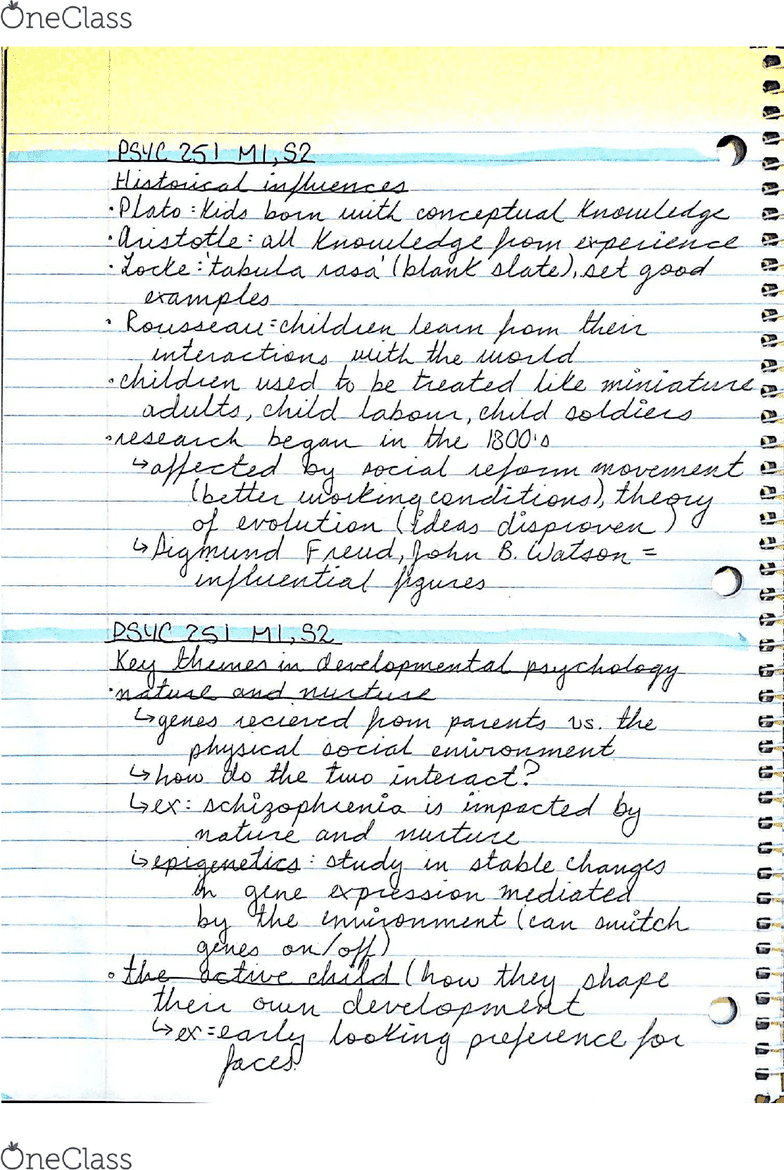 OneClass
PSYC 251 M1, S2
Historical influences
• Plato: Kids born with conceptual knowledge
• Aristotle: all knowledge from experience
• Locke: 'tabula rasa' (blank slate), set good
examples
• Rousseau: children learn from their
interactions with the world
• children used to be treated like miniature
adults, child labour, child soldiers
• research began in the 1800's
↳ affected by social reform movement
(better working conditions), theory
of evolution (ideas disproven)
↳ Sigmund Freud, John B. Watson =
influential figures
PSYC 251 M1, S2
Key themes in developmental psychology
• nature and nurture
↳ genes recieved from parents vs. the
physical social environment
↳ how do the two interact?
↳ ex: schizophrenia is impacted by
nature and nurture
↳ epigenetics: study in stable changes
in gene expression mediated
by the environment (can switch
genes on/off)
• the active child (how they shape
their own development
↳ ex: early looking preference for
faces
OneClass